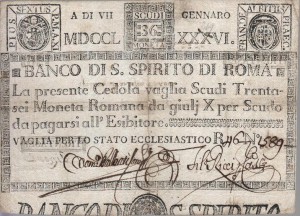 PIUS SEXTUS PAP. M.
A DI VII SCUDI GENNARO
MDCCL 36 XXXVI.
BANCO DI S. SPIRITO DI ROMA
La presente Cedola vaglia Scudi Trenta-
sei Moneta Romana da giulj X per Scudo
da pagarsi all'Esibitore.
VAGLIA PER LO STATO ECCLESIASTICO